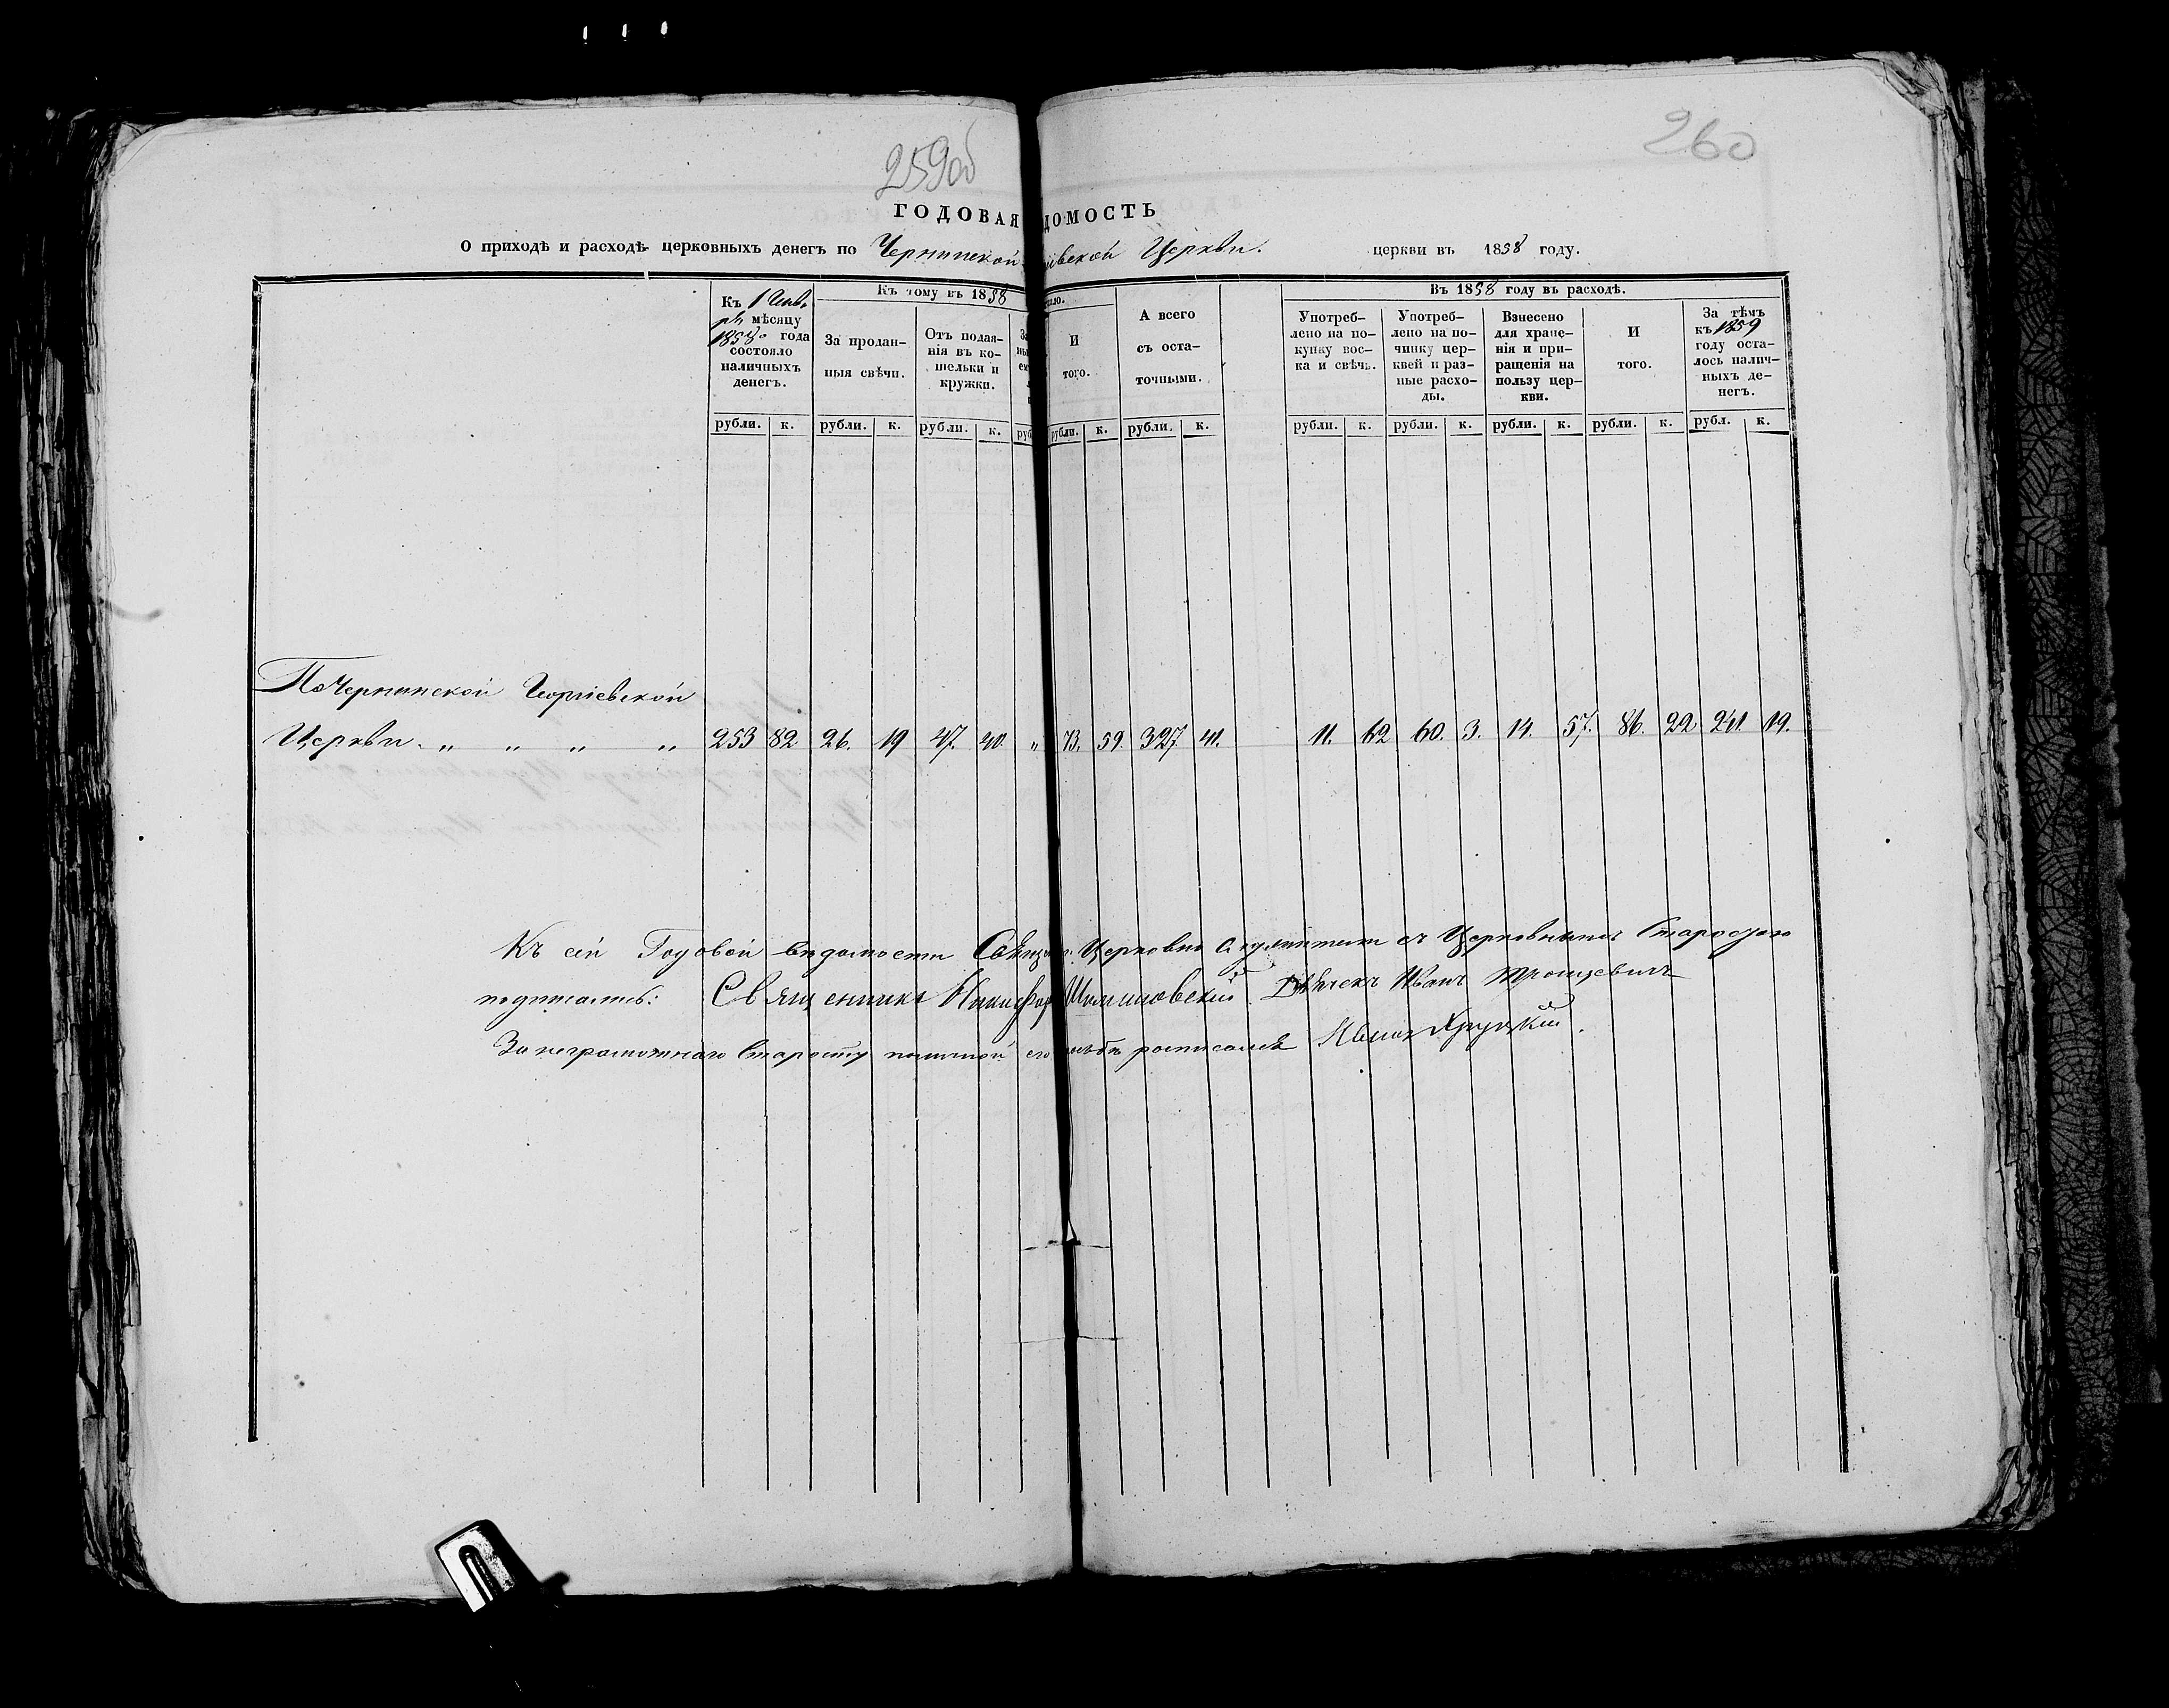 259об
260
ГОДОВАЯ ДОМОСТЬ
О приходѣ и расходѣ церковныхъ денегъ по Чернинской евской Церкви. церкви въ 1858 году.
Къ 1 Генва
ря мѣсяцу
1858о года
состояло
наличныхъ
денегъ.
Къ тому въ 1858
За продан-
ныя свѣчи.
Отъ подая-
нія въ ко-
шельки и
кружки.
И
того.
А всего
съ оста-
точными.
Въ 1858 году въ расходѣ.
Употреб-
лено на по-
купку вос-
ка и свѣчь.
Употреб-
лено на по-
чинку цер-
квей и раз-
ные расхо-
ды.
Взнесено
для хране-
нія и при-
ращенія на
пользу цер-
кви.
И
того.
За тѣмъ
къ 1859
году оста-
лось налич-
ныхъ де-
негъ.
рубли. к. рубли. к. рубли. к. руб рубли. к. рубли. к. рубли. к. рубли. к. рубли. к. рубли. к. рубл. к.
По Чернинской Георгіевской
Церкви „ „ „ „ 253 82 26. 19 47. 40. „ 73. 59. 327. 41. 11. 62 60. 3. 14. 57. 86. 22 241. 19.
Къ сей Годовой вѣдомости Церковно съ Церковнымъ Старостою
подписались: Священникъ Никифор Иванъ
За неграмотнаго Старосту личной его росписался Хруцкій.